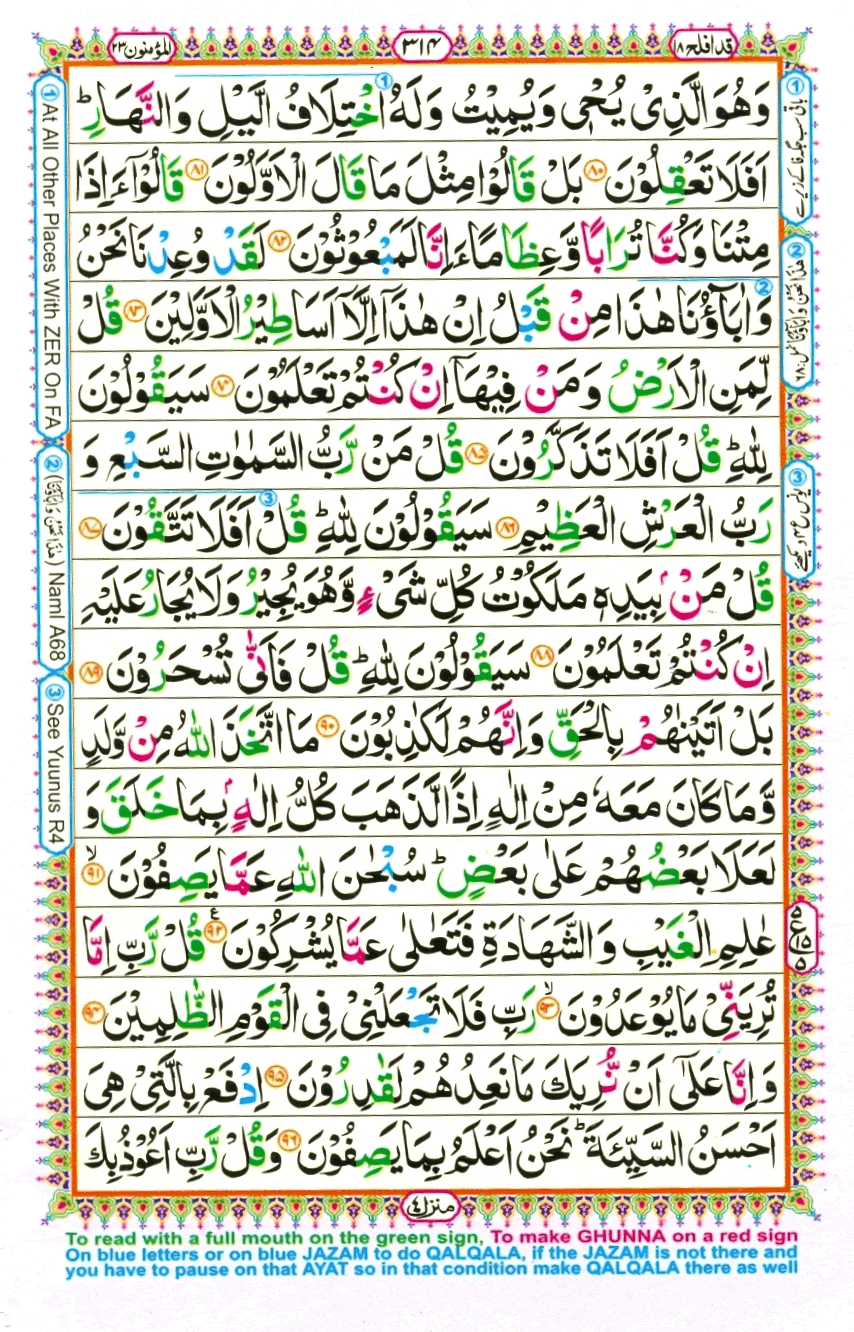 المؤمنون ٢٣
٣١٤
قد افلح ١٨
وَهُوَ الَّذِیْ یُحْیٖ وَیُمِیْتُ وَلَهُ اخْتِلَافُ الَّیْلِ وَالنَّهَارِ ؕ
اَفَلَا تَعْقِلُوْنَ ۸۰ بَلْ قَالُوْا مِثْلَ مَا قَالَ الْاَوَّلُوْنَ ۸۱ قَالُوْۤا ءَاِذَا
مِتْنَا وَكُنَّا تُرَابًا وَّعِظَامًا ءَاِنَّا لَمَبْعُوْثُوْنَ ۸۲ لَقَدْ وُعِدْنَا نَحْنُ
وَاٰبَآؤُنَا هٰذَا مِنْ قَبْلُ اِنْ هٰذَاۤ اِلَّاۤ اَسَاطِیْرُ الْاَوَّلِیْنَ ۸۳ قُلْ
لِّمَنِ الْاَرْضُ وَمَنْ فِیْهَاۤ اِنْ كُنْتُمْ تَعْلَمُوْنَ ۸۴ سَیَقُوْلُوْنَ
لِلّٰهِ ؕ قُلْ اَفَلَا تَذَكَّرُوْنَ ۸۵ قُلْ مَنْ رَّبُّ السَّمٰوٰتِ السَّبْعِ وَ
رَبُّ الْعَرْشِ الْعَظِیْمِ ۸۶ سَیَقُوْلُوْنَ لِلّٰهِ ؕ قُلْ اَفَلَا تَتَّقُوْنَ ۸۷
قُلْ مَنْۢ بِیَدِهٖ مَلَكُوْتُ كُلِّ شَیْءٍ وَّهُوَ یُجِیْرُ وَلَا یُجَارُ عَلَیْهِ
اِنْ كُنْتُمْ تَعْلَمُوْنَ ۸۸ سَیَقُوْلُوْنَ لِلّٰهِ ؕ قُلْ فَاَنّٰی تُسْحَرُوْنَ ۸۹
بَلْ اَتَیْنٰهُمْ بِالْحَقِّ وَاِنَّهُمْ لَكٰذِبُوْنَ ۹۰ مَا اتَّخَذَ اللّٰهُ مِنْ وَّلَدٍ
وَّمَا كَانَ مَعَهٗ مِنْ اِلٰهٍ اِذًا لَّذَهَبَ كُلُّ اِلٰهٍۭ بِمَا خَلَقَ وَ
لَعَلَا بَعْضُهُمْ عَلٰی بَعْضٍ ؕ سُبْحٰنَ اللّٰهِ عَمَّا یَصِفُوْنَ ۙ ۹۱
عٰلِمِ الْغَیْبِ وَالشَّهَادَةِ فَتَعٰلٰی عَمَّا یُشْرِكُوْنَ ۹۲ ع قُلْ رَّبِّ اِمَّا
تُرِیَنِّیْ مَا یُوْعَدُوْنَ ۙ ۹۳ رَبِّ فَلَا تَجْعَلْنِیْ فِی الْقَوْمِ الظّٰلِمِیْنَ ۹۴
وَاِنَّا عَلٰۤی اَنْ نُّرِیَكَ مَا نَعِدُهُمْ لَقٰدِرُوْنَ ۹۵ اِدْفَعْ بِالَّتِیْ هِیَ
اَحْسَنُ السَّیِّئَةَ ؕ نَحْنُ اَعْلَمُ بِمَا یَصِفُوْنَ ۹۶ وَقُلْ رَّبِّ اَعُوْذُ بِكَ
منزل ٤
① At All Other Places With ZER On FA
② (هٰذَا نَحْنُ وَاٰبَآؤُنَا) Naml A68
③ See Yuunus R4
② هٰذَا نَحْنُ وَاٰبَآؤُنَا نمل: ٦٨
To read with a full mouth on the green sign, To make GHUNNA on a red sign
On blue letters or on blue JAZAM to do QALQALA, if the JAZAM is not there and
you have to pause on that AYAT so in that condition make QALQALA there as well